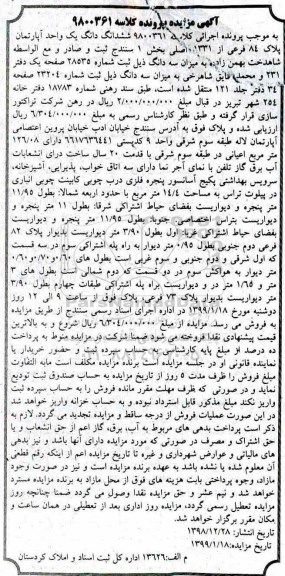 آگهی مزایده پرونده کلاسه ۹۸۰۰۳۶۱
به موجب پرونده اجرائی کلاسه ۹۸۰۰۳۶۱ ششدانگ دانگ یک واحد آپارتمان
پلاک ۸۴ فرعی از ۳۳۱ اصلی بخش ۱ سنندج ثبت و صادر و مع الواسطه
شاهدخت بهمن زاده به میزان سه دانگ ذیل ثبت شماره ۲۸۵۳۵ صفحه یک دفتر
۲۳۱ و محمد فایق شاهرخی به میزان سه دانگ ذیل ثبت شماره ۲۳۲۰۴ صفحه
۳۴ دفتر جلد ۱۲۱ منتقل شده است، طبق سند رهنی شماره ۱۸۷۸۳ دفتر خانه
۲۵۴ شهر تبریز در قبال مبلغ ۲/۰۰۰/۰۰۰/۰۰۰ ریال در رهن شرکت تراکتور
سازی قرار گرفته و طبق نظر کارشناس رسمی به مبلغ ۶/۳۰۴/۰۰۰/۰۰۰ ریال
ارزیابی شده و پلاک فوق به آدرس سنندج خیابان ادب خیابان پروین اعتصامی
آپارتمان لاله طبقه سوم شرقی واحد ۹ کدپستی ۶۶۱۷۶۳۶۴۴۱ دارای ۱۲۶/۰۸
متر مربع اعیانی در طبقه سوم شرقی با قدمت ۲۰ سال ساخت دارای انشعابات
آب برق گاز تلفن با نمای آجر نما دارای سه اتاق خواب، پذیرایی، آشپزخانه،
سرویس بهداشتی پکیج آسانسور پنجره فلزی درب چوبی کابینت چوبی انباری
در پیلوت تراس به مساحت ۱۱/۴ متر مربع با حدود اربعه شمالا: بطول ۱۱/۹۵
متر پنجره و دیواریست بفضای حیاط اشتراکی شرقا: بطول ۱۱ متر پنجره و
دیواریست بتراس اختصاصی جنوبا: بطول ۱۱/۹۵ متر پنجره و دیواریست
بفضای حیاط اشتراکی غربا: اول بطول ۳/۹۰ متر دیواریست بدیوار پلاک ۸۲
فرعی دوم جنوبی بطول ۰/۹۵ متر دیوار به راه پله اشتراکی سوم در سه قسمت
که اول شرقی و دوم جنوبی و سوم غربی است بطول های ۰/۶۰ و ۰/۷۰ و ۰/۶۰
متر دیوار به هواکش سوم در دو قسمت که دوم شمالی است بطول های ۳
متر و ۱/۶۵ متر در و دیواریست براه پله اشتراکی طبقات چهارم بطول ۳/۹۰
متر دیواریست بدیوار پلاک ۷۲ فرعی، پلاک فوق از ساعت ۹ الی ۱۲ روز
دوشنبه مورخ ۱۳۹۹/۱/۱۸ در اداره اجرای اسناد رسمی سنندج از طریق مزایده
به فروش می رسد. مزایده از مبلغ ۶/۳۰۴/۰۰۰/۰۰۰ ریال شروع و به بالاترین
قیمت پیشنهادی نقدا فروخته می شود ضمنا شرکت در مزایده منوط به پرداخت
ده درصد از مبلغ پایه کارشناسی به حساب سپرده ثبت و حضور خریدار یا
نماینده قانونی او در جلسه مزایده است برنده مزایده مکلف است مابه التفاوت
مبلغ فروش را ظرف مدت ۵ روز از تاریخ مزایده به حساب صندوق ثبت تودیع
نماید و در صورتی که ظرف مهلت مقرر مانده فروش را به حساب سپرده ثبت
واریز نکند مبلغ مذکور قابل استرداد نبوده و به حساب خزانه واریز خواهد شد
در این صورت عملیات فروش از درجه ساقط و مزایده تجدید می گردد. لازم به
ذکر است پرداخت بدهی های مربوط به آب، برق، گاز اعم از حق انشعاب و یا
حق اشتراک و مصرف در صورتی که مورد مزایده دارای آنها باشد و نیز بدهی
های مالیاتی و عوارض شهرداری و غیره تا تاریخ مزایده اعم از اینکه رقم قطعی
آن معلوم شده یا نشده باشد به عهده برنده مزایده است و نیز در صورت وجود
مازاد، وجوه پرداختی بابت هزینه های فوق از محل مازاد به برنده مزایده مسترد
خواهد شد و نیم عشر و حق مزایده نقدا وصول می گردد ضمنا چنانچه روز
مزایده تعطیل رسمی گردد، مزایده روز اداری بعد از تعطیلی در همان ساعت و
مکان مقرر برگزار خواهد شد.
تاریخ انتشار: ۱۳۹۸/۱۲/۲۸
تاریخ مزایده: ۱۳۹۹/۱/۱۸
م الف: ۱۳۶۲۶ اداره کل ثبت اسناد و املاک کردستان